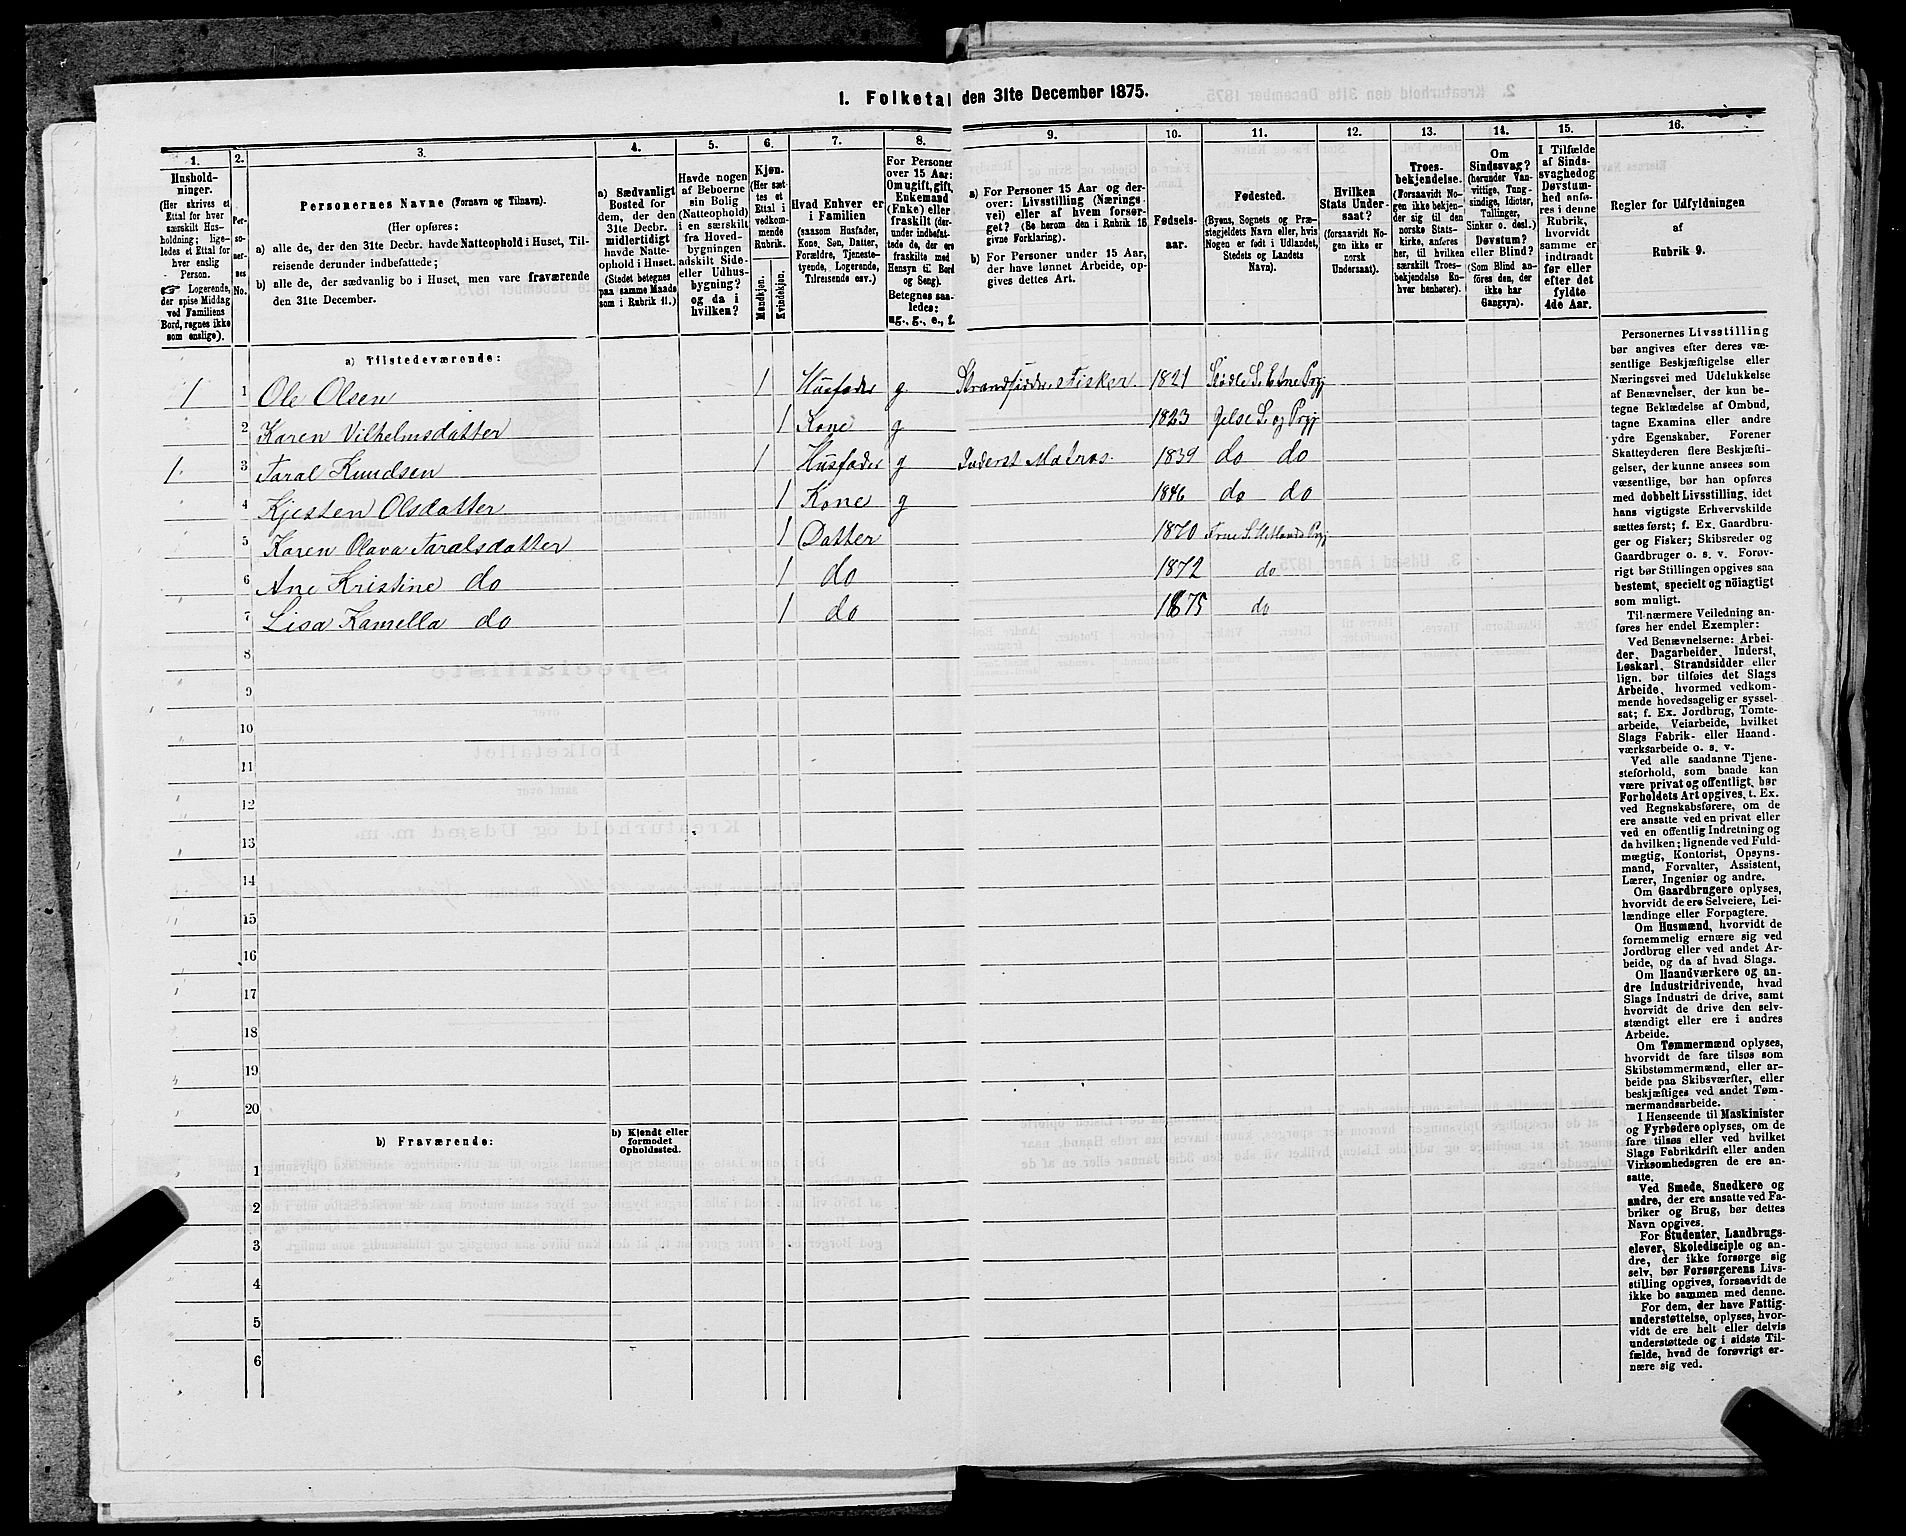 1. Folketal den 31te December 1875.
1.
2.
3.
4.
5.
6.
7.
8.
9.
10.
11.
12.
13.
14.
15.
16.
Hushold-
ninger.
(Her skrives et
Ettal for hver
særskilt Hus-
holdning; lige-
ledes et Ettal for
hver enslig
Person.
☞ Logerende,
der spise Middag
ved Familiens
Bord, regnes ikke
som enslige).
Per-
so-
ner-
nes
No.
Personernes Navne (Fornavn og Tilnavn).
(Her opføres:
a) alle de, der den 31te Decbr. havde Natteophold i Huset, Til-
reisende derunder indbefattede;
b) alle de, der sædvanlig bo i Huset, men vare fraværende
den 31te December.
a) Sædvanligt
Bosted for
dem, der den
31te Decbr.
midlertidigt
havde Natte-
ophold i Huset.
(Stedet betegnes
paa samme Maade
som i Rubrik 11.)
Havde nogen
af Beboerne
sin Bolig
(Natteophold)
i en særskilt
fra Hoved-
bygningen
adskilt Side-
eller Udhus-
bygning?
og da i
hvilken?
Kjøn.
(Her sæt-
tes et
Ettal i
vedkom-
mende
Rubrik.
Mandkjøn.
Kvindekjøn.
Hvad Enhver er
i Familien
(saasom Husfader,
Kone, Søn, Datter,
Forældre, Tjeneste-
tyende, Logerende,
Tilreisende osv.)
For Personer
over 15 Aar:
Om ugift, gift,
Enkemand
(Enke) eller
fraskilt (der-
under indbefat-
tede de, der ere
fraskilte med
Hensyn til Bord
og Seng).
Betegnes saa-
ledes:
ug., g., e., f.
a) For Personer 15 Aar og der-
over: Livsstilling (Nærings-
vei) eller af hvem forsør-
get? (Se herom den i Rubrik 16
givne Forklaring).
b) For Personer under 15 Aar,
der have lønnet Arbeide, op-
gives dettes Art.
Fødsels-
aar.
Fødested.
(Byens, Sognets og Præ-
stegjeldets Navn eller, hvis
Nogen er født i Udlandet,
Stedets og Landets
Navn).
Hvilken
Stats Under-
saat?
(forsaavidt No-
gen ikke er
norsk
Undersaat).
Troes-
bekjendelse.
(Forsaavidt No-
gen ikke bekjen-
der sig til den
norske Stats-
kirke, anføres
her, til hvilken
særskilt Troes-
bekjendelse En-
hver henhører).
Om
Sindssvag?
(herunder Van-
vittige, Tung-
sindige, Idioter,
Tullinger,
Sinker o. desl.)
Døvstum?
eller Blind?
(Som Blind an-
føres den, der
ikke har
Gangsyn).
I Tilfælde
af Sinds-
svaghed og
Døvstum-
hed anfø-
res i denne
Rubrik,
hvorvidt
samme er
indtraadt
før eller
efter det
fyldte
4de Aar.
Regler for Udfyldningen
af
Rubrik 9.
a) Tilstedeværende:
1 1 Ole Olsen 1 Husfader g Strandsidder Fisker. 1821 Stødle S. Etne Prgj
2 Karen Vilhelmsdatter 1 Kone g 1823 Jelse S. og Prgj
1. 3 Taral Knudsen 1 Husfader g Inderst Matros. 1839 do do
4 Kjesten Olsdatter 1 Kone g 1846 do do
5 Karen Olava Taralsdatter 1 Datter 1870 Frue S. Hetlands Prgj
6 Ane Kristine do 1 do 1872 do
7 Lisa Kamella do 1 do 1875 do
8
9
10
11
12
13
14
15
16
17
18
19
20
b) Fraværende:
b) Kjendt eller
formodet
Opholdssted.
1
2
3
4
5
6
Personernes Livsstilling
bør angives efter deres væ-
sentlige Beskjæftigelse eller
Næringsvei med Udelukkelse
af Benævnelser, der kun be-
tegne Beklædelse af Ombud,
tagne Examina eller andre
ydre Egenskaber. Forener
Skatteyderen flere Beskjæfti-
gelser, der kunne ansees som
væsentlige, bør han opføres
med dobbelt Livsstilling, idet
hans vigtigste Erhvervskilde
sættes først; f. Ex. Gaardbru-
ger og Fisker; Skibsreder og
Gaardbruger o. s. v. Forøv-
rigt bør Stillingen opgives saa
bestemt, specielt og nøiagtigt
som muligt.
Til nærmere Veiledning an-
føres her endel Exempler:
Ved Benævnelserne: Arbei-
der, Dagarbeider, Inderst,
Løskarl, Strandsidder eller
lign. bør tilføies det Slags
Arbeide, hvormed vedkom-
mende hovedsagelig er syssel-
sat; f. Ex. Jordbrug, Tomte-
arbeide, Veiarbeide, hvilket
Slags Fabrik- eller Haand-
værksarbeide o. s. v.
Ved alle saadanne Tjene-
steforhold, som baade kan
være privat og offentligt, bør
Forholdets Art opgives, t. Ex.
ved Regnskabsførere, om de
ere ansatte ved en privat eller
ved en offentlig Indretning og
da hvilken; lignende ved Fuld-
mægtig, Kontorist, Opsyns-
mand, Forvalter, Assistent,
Lærer, Ingeniør og andre.
Om Gaardbrugere oplyses,
hvorvidt de ere Selveiere, Lei-
lændinge eller Forpagtere.
Om Husmænd, hvorvidt de
fornemmelig ernære sig ved
Jordbrug eller ved andet Ar-
beide, og da af hvad Slags.
Om Haandværkere og an-
dre Industridrivende, hvad
Slags Industri de drive, samt
hvorvidt de drive den selv-
stændigt eller ere i andres
Arbeide.
Om Tømmermænd oplyses,
hvorvidt de fare tilsøs som
Skibstømmermænd, eller ar-
beide paa Skibsværfter, eller
beskjæftiges ved andet Tøm-
mermandsarbeide.
I Henseende til Maskinister
og Fyrbødere oplyses, om de
fare tilsøs eller ved hvilket
Slags Fabrikdrift eller anden
Virksomhedsgren de ere an-
satte.
Ved Smede, Snedkere og
andre, der ere ansatte ved Fa-
briker og Brug, bør dettes
Navn opgives.
For Studenter, Landbrugs-
elever, Skoledisciple og an-
dre, der ikke forsørge sig
selv, bør Forsørgerens Livs-
stilling opgives, forsaavidt de
ikke bo sammen med denne.
For dem, der have Fattig-
understøttelse, oplyses, hvor-
vidt de ere helt eller delvis
understøttede og i sidste Til-
fælde, hvad de forøvrigt er-
nære sig ved.